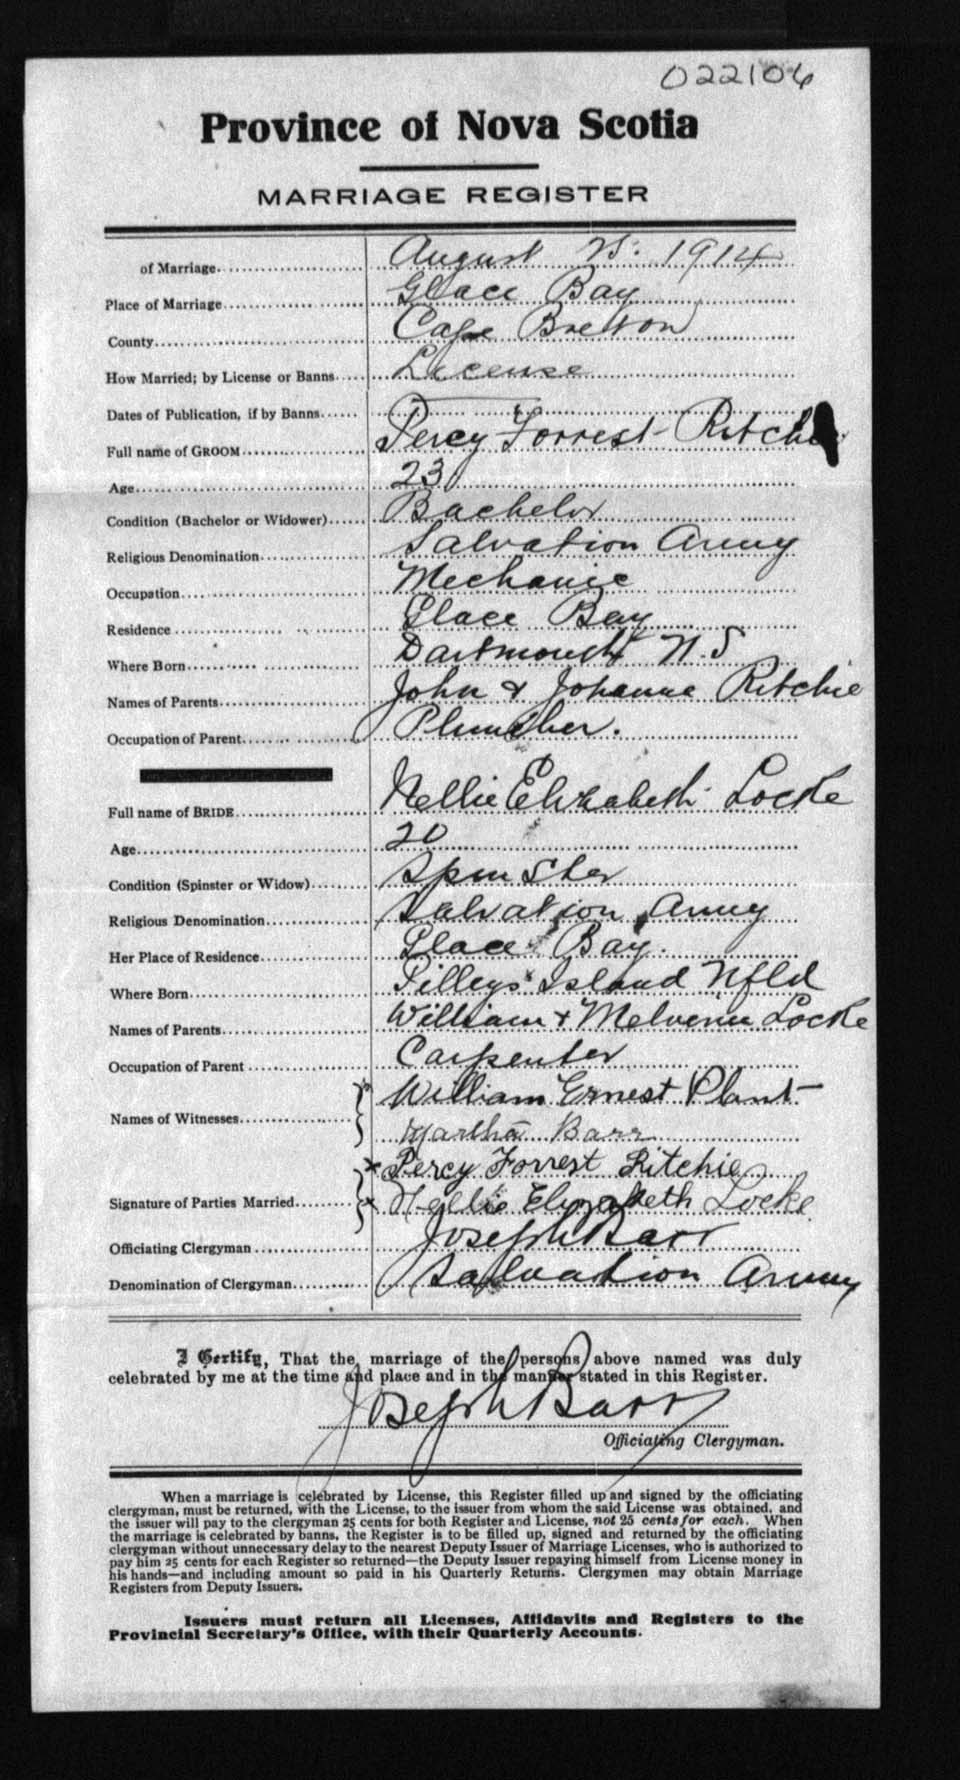 022106
Province of Nova Scotia
MARRIAGE REGISTER
of Marriage August 1914
Place of Marriage Glace Bay
County Cape Breton
How Married; by License or Banns License
Dates of Publication, if by Banns
Full name of GROOM Percy Forrest Ritchie
Age 23
Condition (Bachelor or Widower) Bachelor
Religious Denomination Salvation Army
Occupation Mechanic
Residence Glace Bay
Where Born Dartmouth N.S
Names of Parents John & Johanna Ritchie
Occupation of Parent Plumber.
Full name of BRIDE Nellie Elizabeth Locke
Age 20
Condition (Spinster or Widow) Spinster
Religious Denomination Salvation Army
Her Place of Residence Glace Bay.
Where Born Pilleys Island Nfld
Names of Parents William & Melvenia Locke
Occupation of Parent Carpenter
Names of Witnesses William Ernest Plant
Martha Barr
Percy Forrest Ritchie
Signature of Parties Married Nellie Elizabeth Locke
Officiating Clergyman Joseph Barr
Denomination of Clergyman Salvation Army
I Certify, That the marriage of the persons above named was duly
celebrated by me at the time and place and in the manner stated in this Register.
Joseph Barr
Officiating Clergyman.
When a marriage is celebrated by License, this Register filled up and signed by the officiating
clergyman, must be returned, with the License, to the issuer from whom the said License was obtained, and
the issuer will pay to the clergyman 25 cents for both Register and License, not 25 cents for each. When
the marriage is celebrated by banns, the Register is to be filled up, signed and returned by the officiating
clergyman without unnecessary delay to the nearest Deputy Issuer of Marriage Licenses, who is authorized to
pay him 25 cents for each Register so returned—the Deputy Issuer repaying himself from License money in
his hands—and including amount so paid in his Quarterly Returns. Clergymen may obtain Marriage
Registers from Deputy Issuers.
Issuers must return all Licenses, Affidavits and Registers to the
Provincial Secretary's Office, with their Quarterly Accounts.